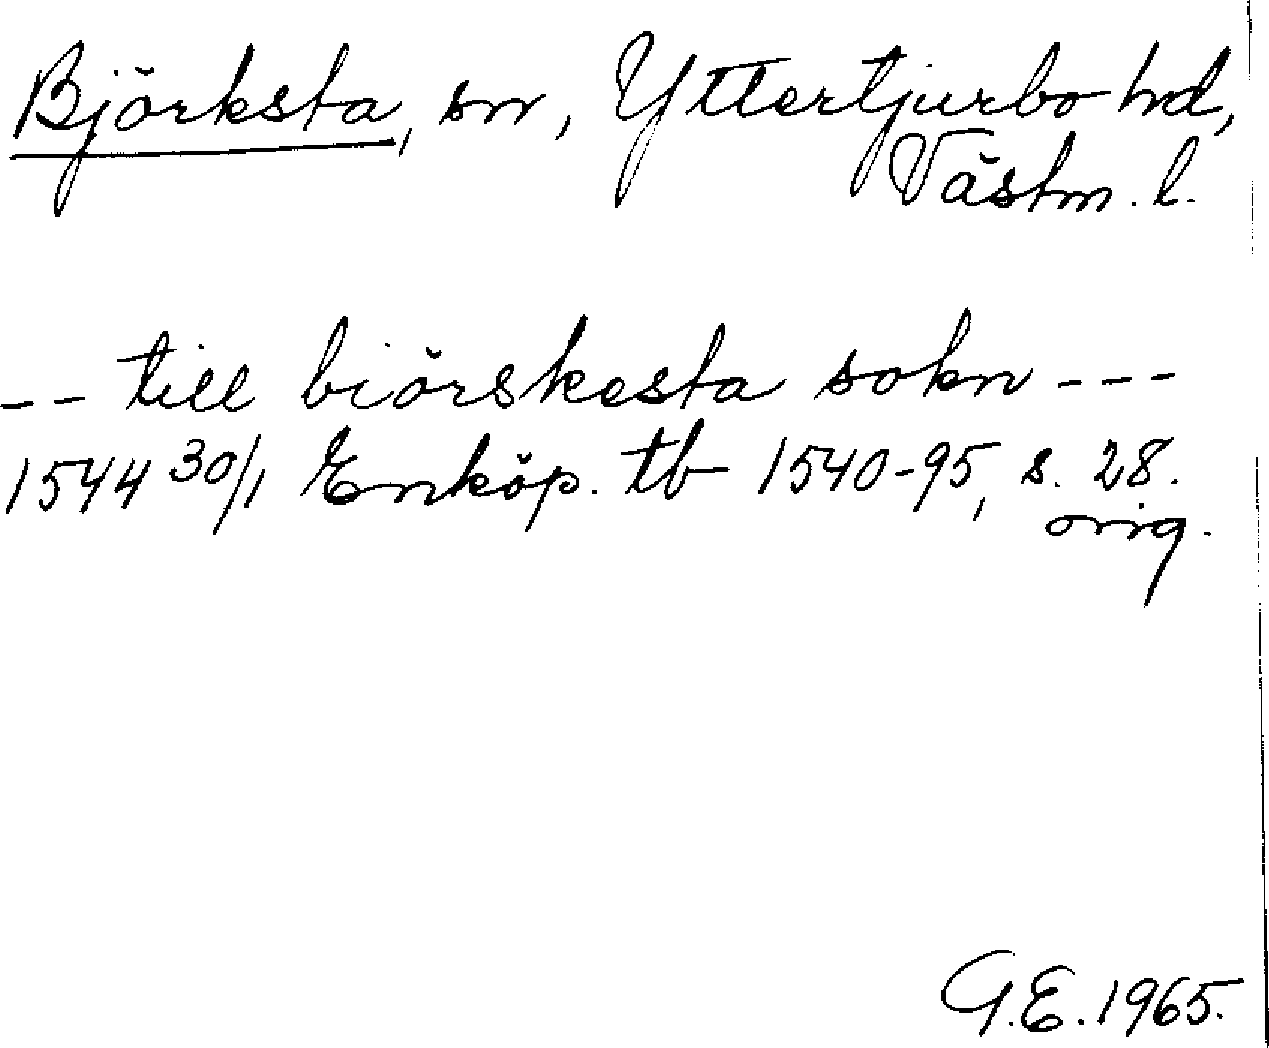 Björksta, sn, Yttertjurbo hd,
Västm. l.
-- till biörskesta sokn ---
1544 30/1 Enköp. tb 1540-95, s. 28.
orig.
G.E. 1965.